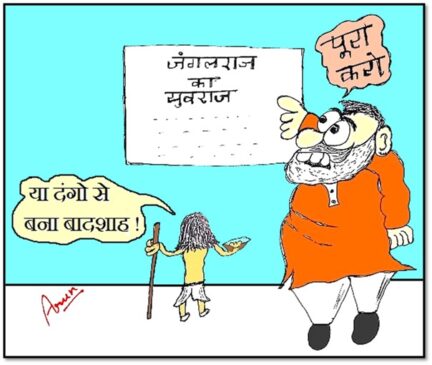 जंगलराज
का
युवराज
पूरा
करो
या दंगो से
बना बादशाह !